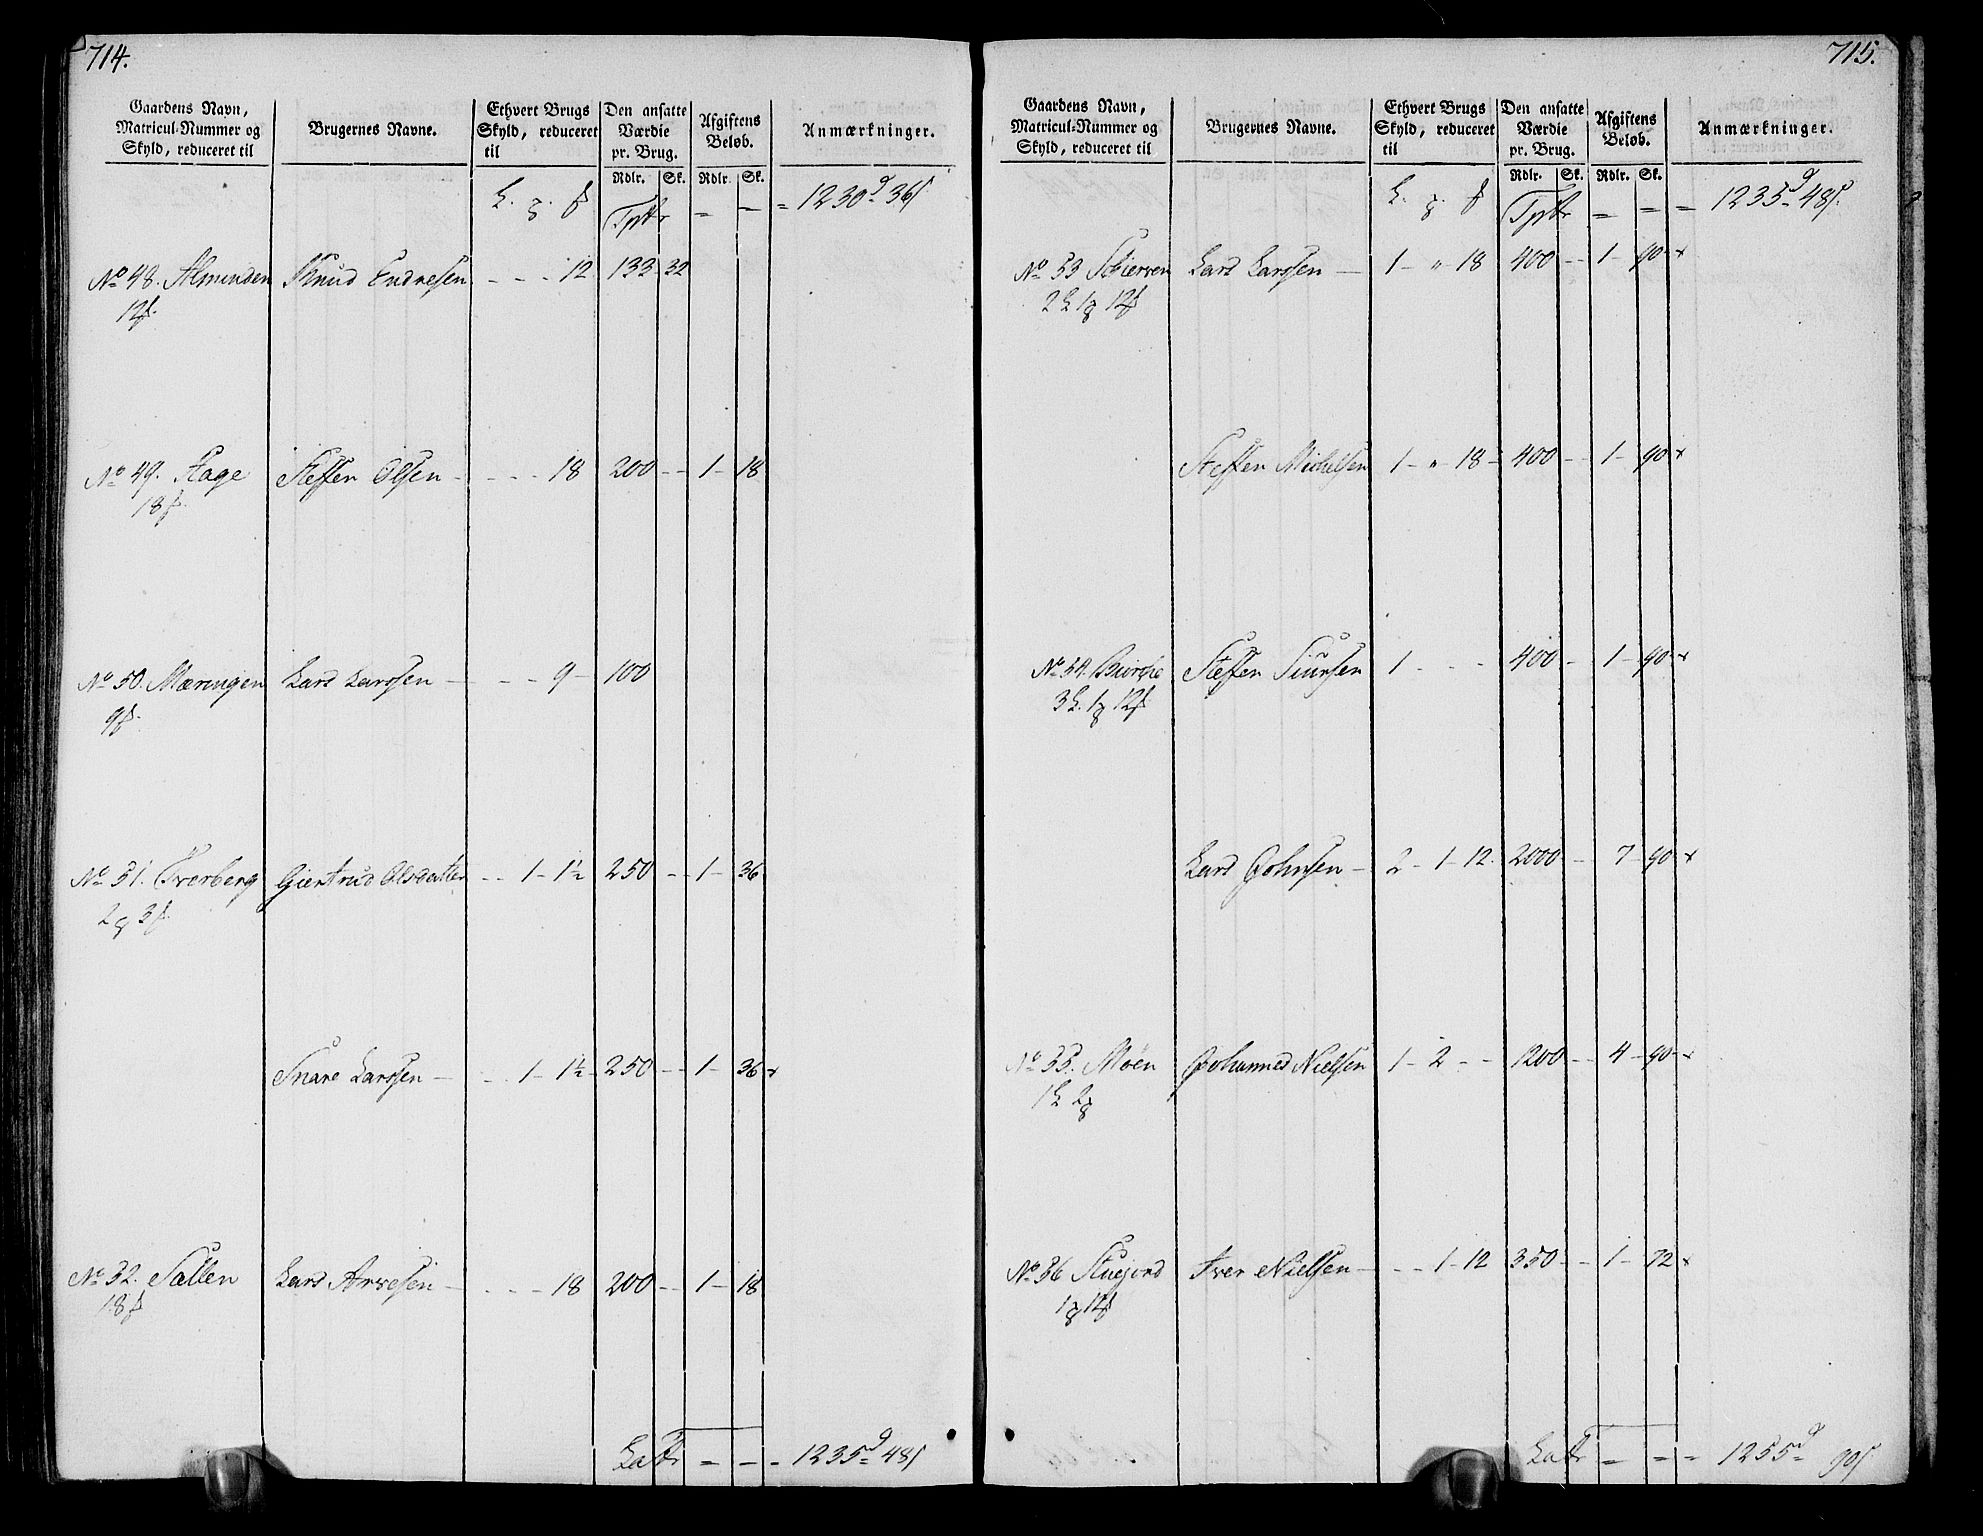 714.
Gaardens Navn, Matricul-Nummer og Skyld, reduceret til | Brugernes Navne. | Ethvert Brugs Skyld, reduceret til | Den ansatte Værdie pr. Brug. Rdlr. Sk. | Afgiftens Beløb. Rdlr. Sk. | Anmærkninger.
Tptr = = = 1230 36
No 48. Almenden Knud Endresen - - - 12 133 32
12
No 49. Hage Steffen Olsen - - - - 18 200 - - 1 - 18
18
No 50. Mæringen Lars Larssen - - - 9 - 100
9
No 51. Tverberg Giertrud Olsdatter - - 1 - 1½ 250 - - 1 - 36
2 3
Snare Larssen - - - 1 - 1½ 250 - - 1 - 36 x
No 52. Sallen Lars Arvesen - - - - 18 200 - - 1 - 18
18
Latr = = = 1235 48
715.
Gaardens Navn, Matricul-Nummer og Skyld, reduceret til | Brugernes Navne. | Ethvert Brugs Skyld, reduceret til | Den ansatte Værdie pr. Brug. Rdlr. Sk. | Afgiftens Beløb. Rdlr. Sk. | Anmærkninger.
Tptr = = = 1235 48
No 53 Schierven Lars Larssen - 1 - " 18 400 - - 1 - 90 x
2 1 12
Steffen Michelsen 1 - " 18 - 400 - - 1 - 90 x
No 54. Steffen Siursen 1 - - - 400 - 1 - 90 x
3 1 12
Lars Johnsen - 2 - 1 - 12. 2000 - 7 - 90 x
No 55. Moen Johannes Nielsen 1 - 2 - - 1200 - - 4 - 90 - x
1 2
No 56 Iver Nielsen - - - 1 - 12 350 - - 1 - 72 x
1 12
Latr = = = 1255 90